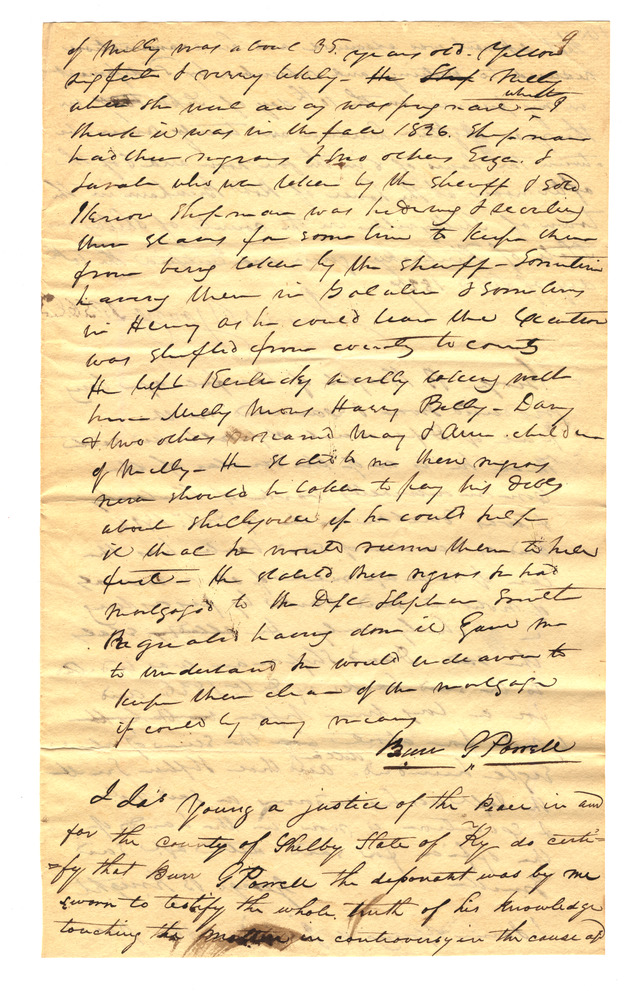 9
of Milly was about 35 years old. Yellow
& very likely — He Ship Milly
when she went away was pregnant — I
think it was in the fall 1826. Shipman
had these negroes & two others &
Sarah who were taken by the Sheriff & sold
I know Shipman was hiding & secreting
these slaves for some time to keep them
from being taken by the Sheriff — Sometimes
having them in Galatin & sometimes
in Henry as he could learn the Execution
was shifted from county to county
He left Kentucky taking with
him Milly Harry Billy — Davy
& two others Mary & Ann children
of Milly — He stated to me these negroes
never should be taken to pay his debts
about Shelbyville if he could help
it that he would run them to hell
first — He stated these negroes he had
mortgaged to the Deft Stephen Smith
Regretted having done it Gave me
to understand he would endeavour to
keep them clear of the mortgage
if could by any means
Burr G Powell
I Young a justice of the Peace in and
for the county of Shelby State of Ky do certi=
=fy that Burr G Powell the deponant was by me
sworn to testify the whole truth of his knowledge
touching the matter in controversy in the cause of